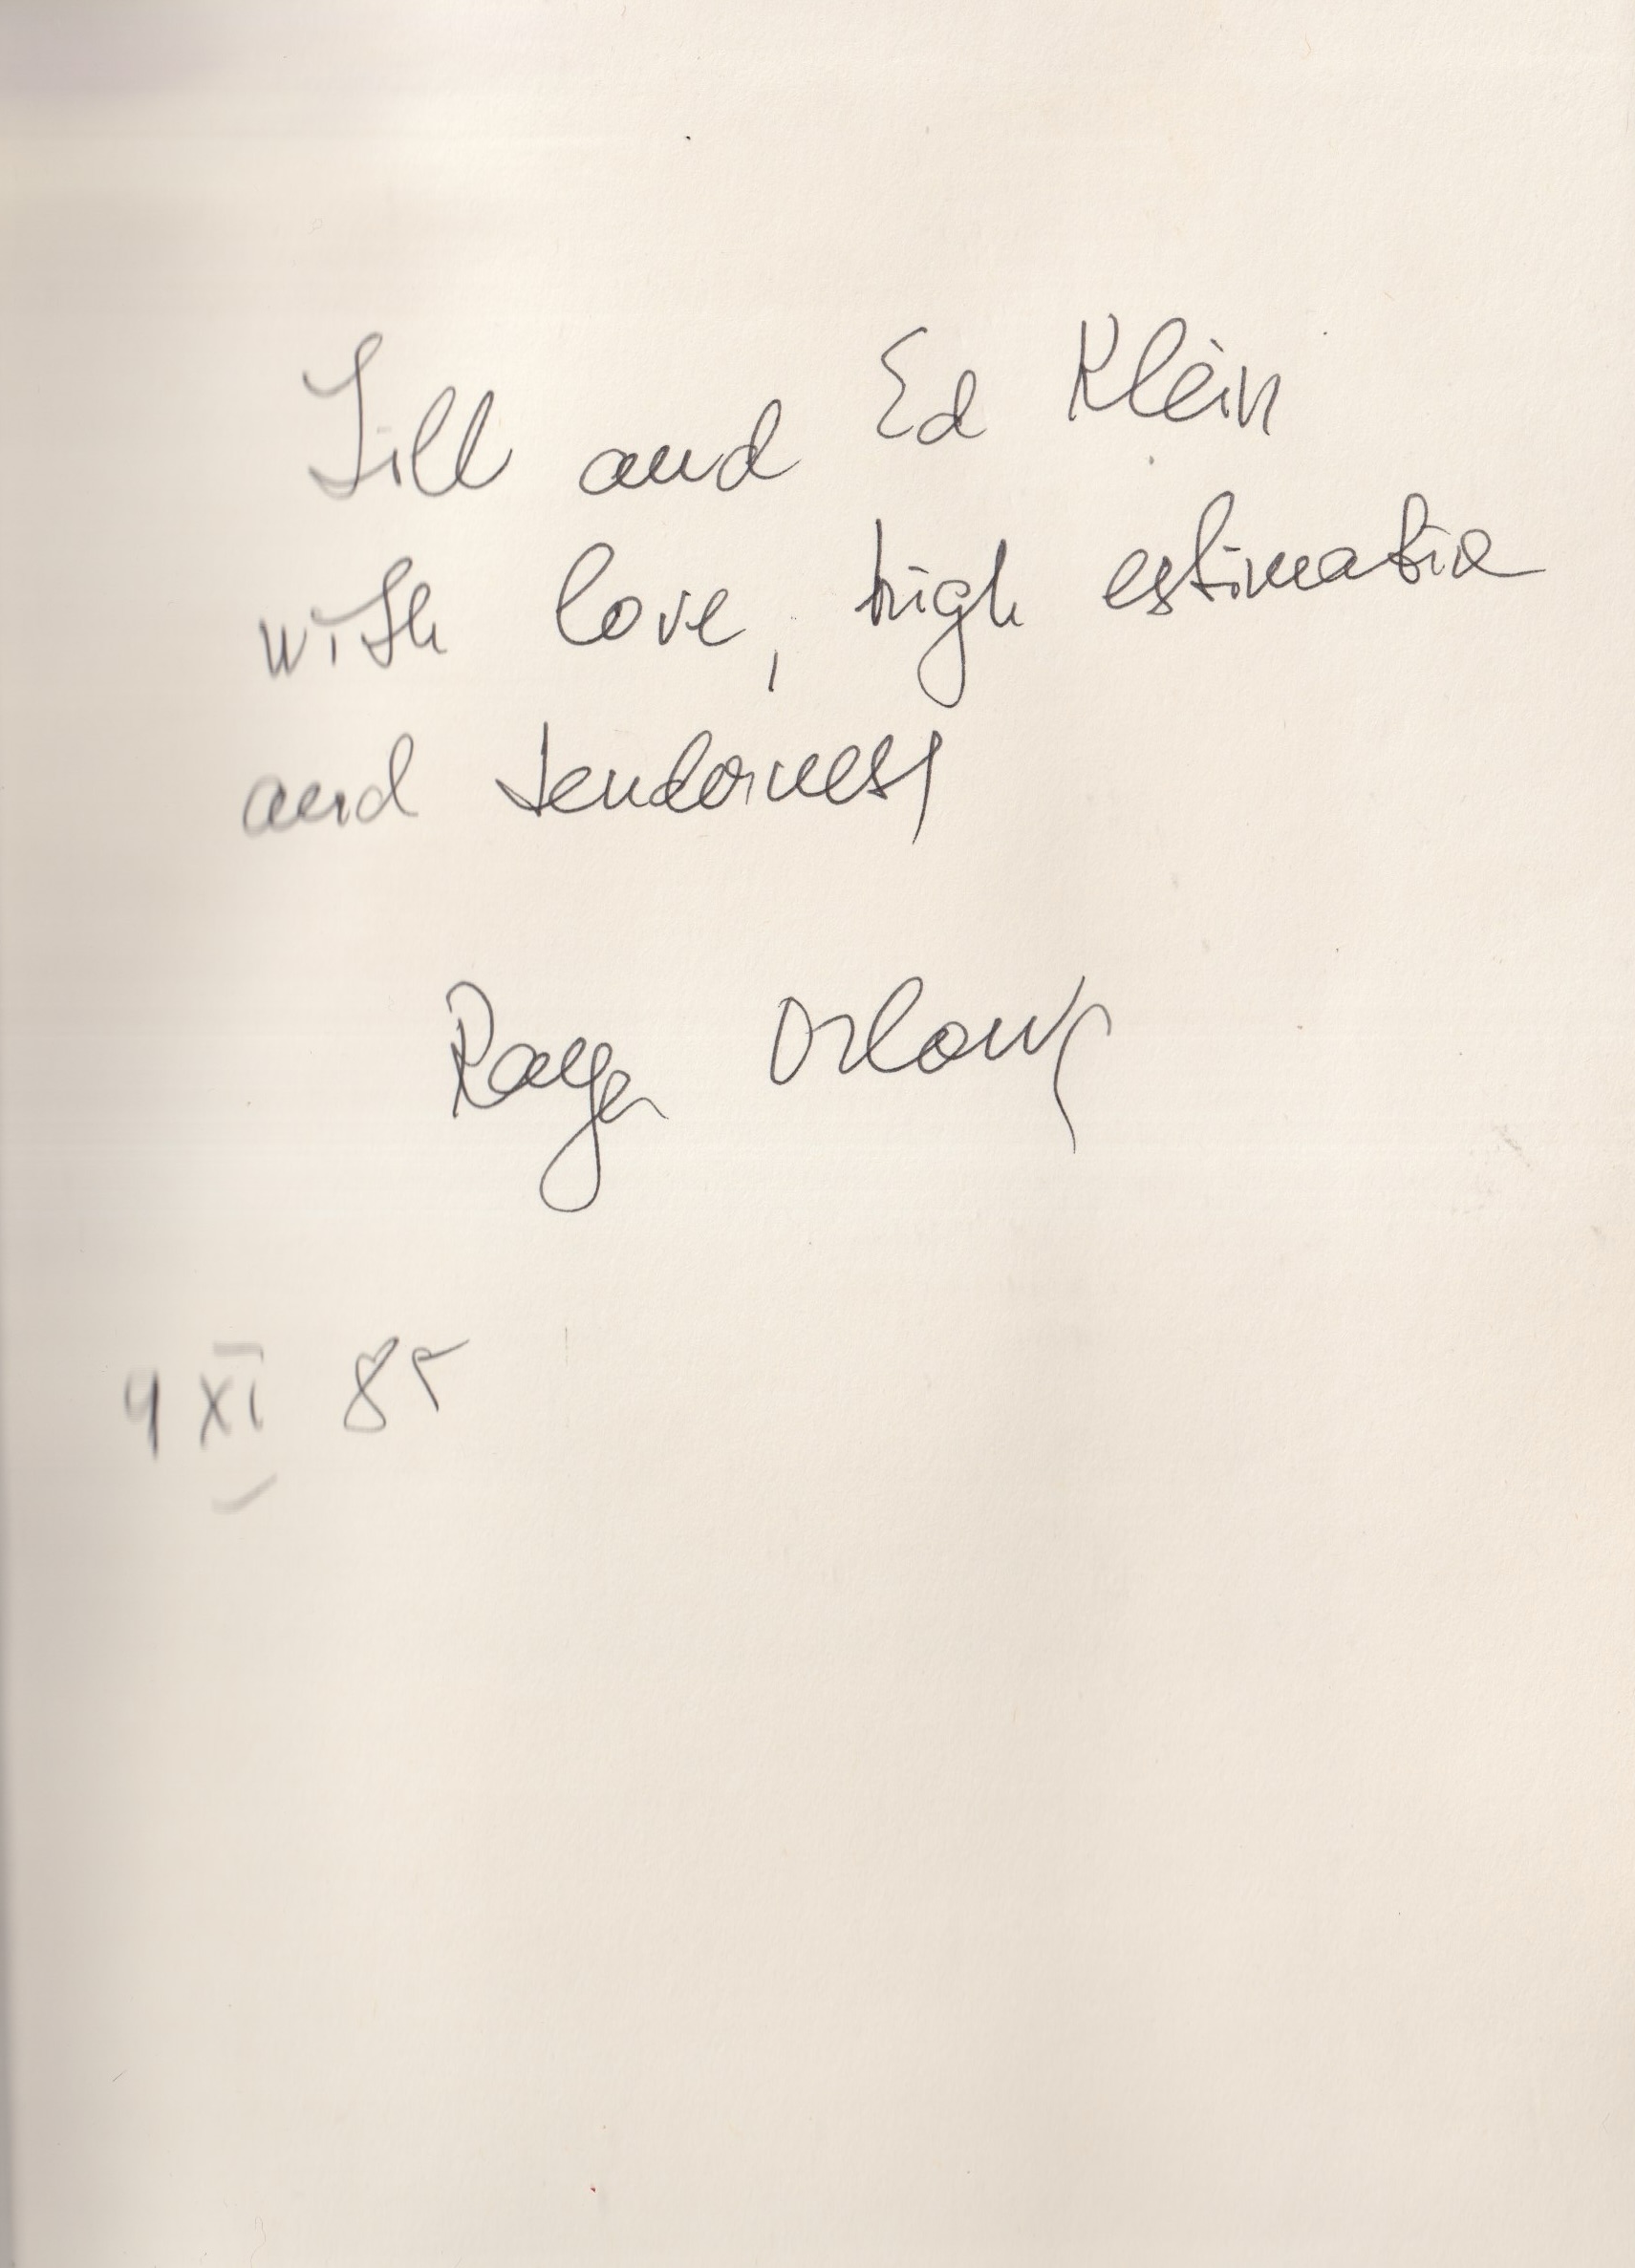 Jill and Ed Klein
with love, high estimation
and tenderness
Raya Orlowa
4 XI 85